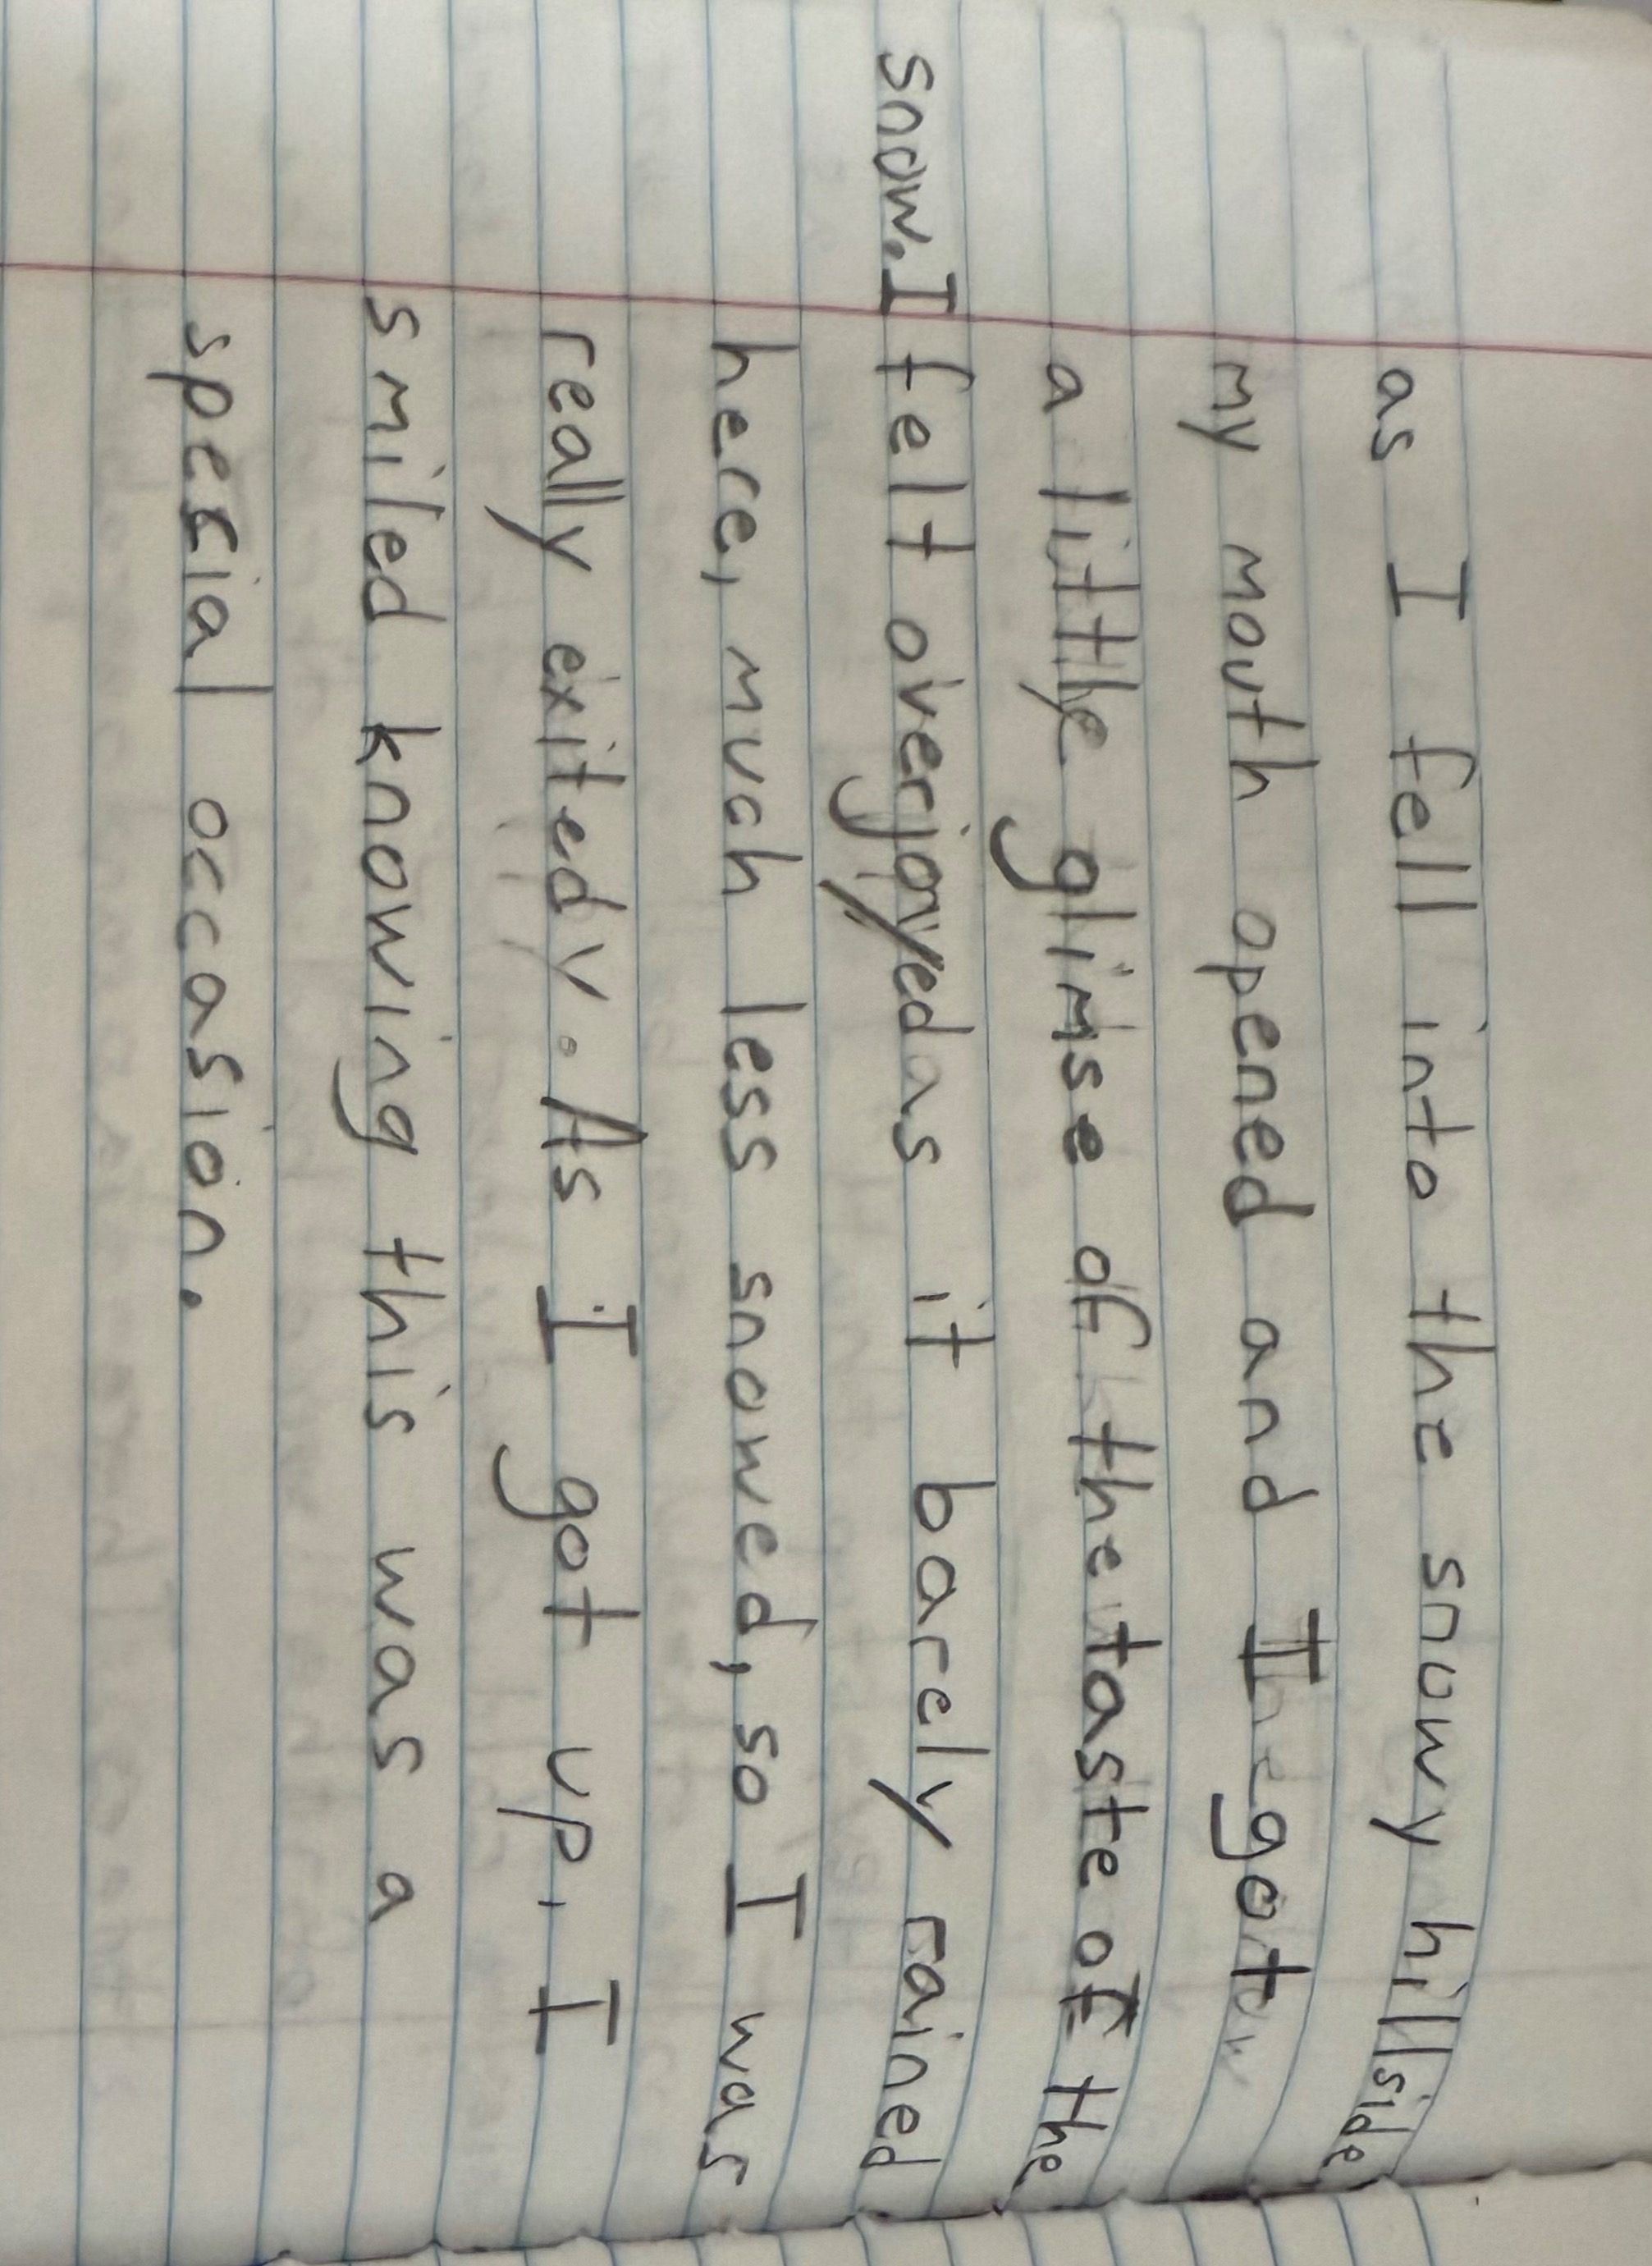 as I fell into the snowy hillside
my mouth opened and I got
a little glimse of the taste of the
snow. I felt overjoyed as it barely rained
here, much less snowed, so I was
really exited. As I got up, I
smiled knowing this was a
special occasion.